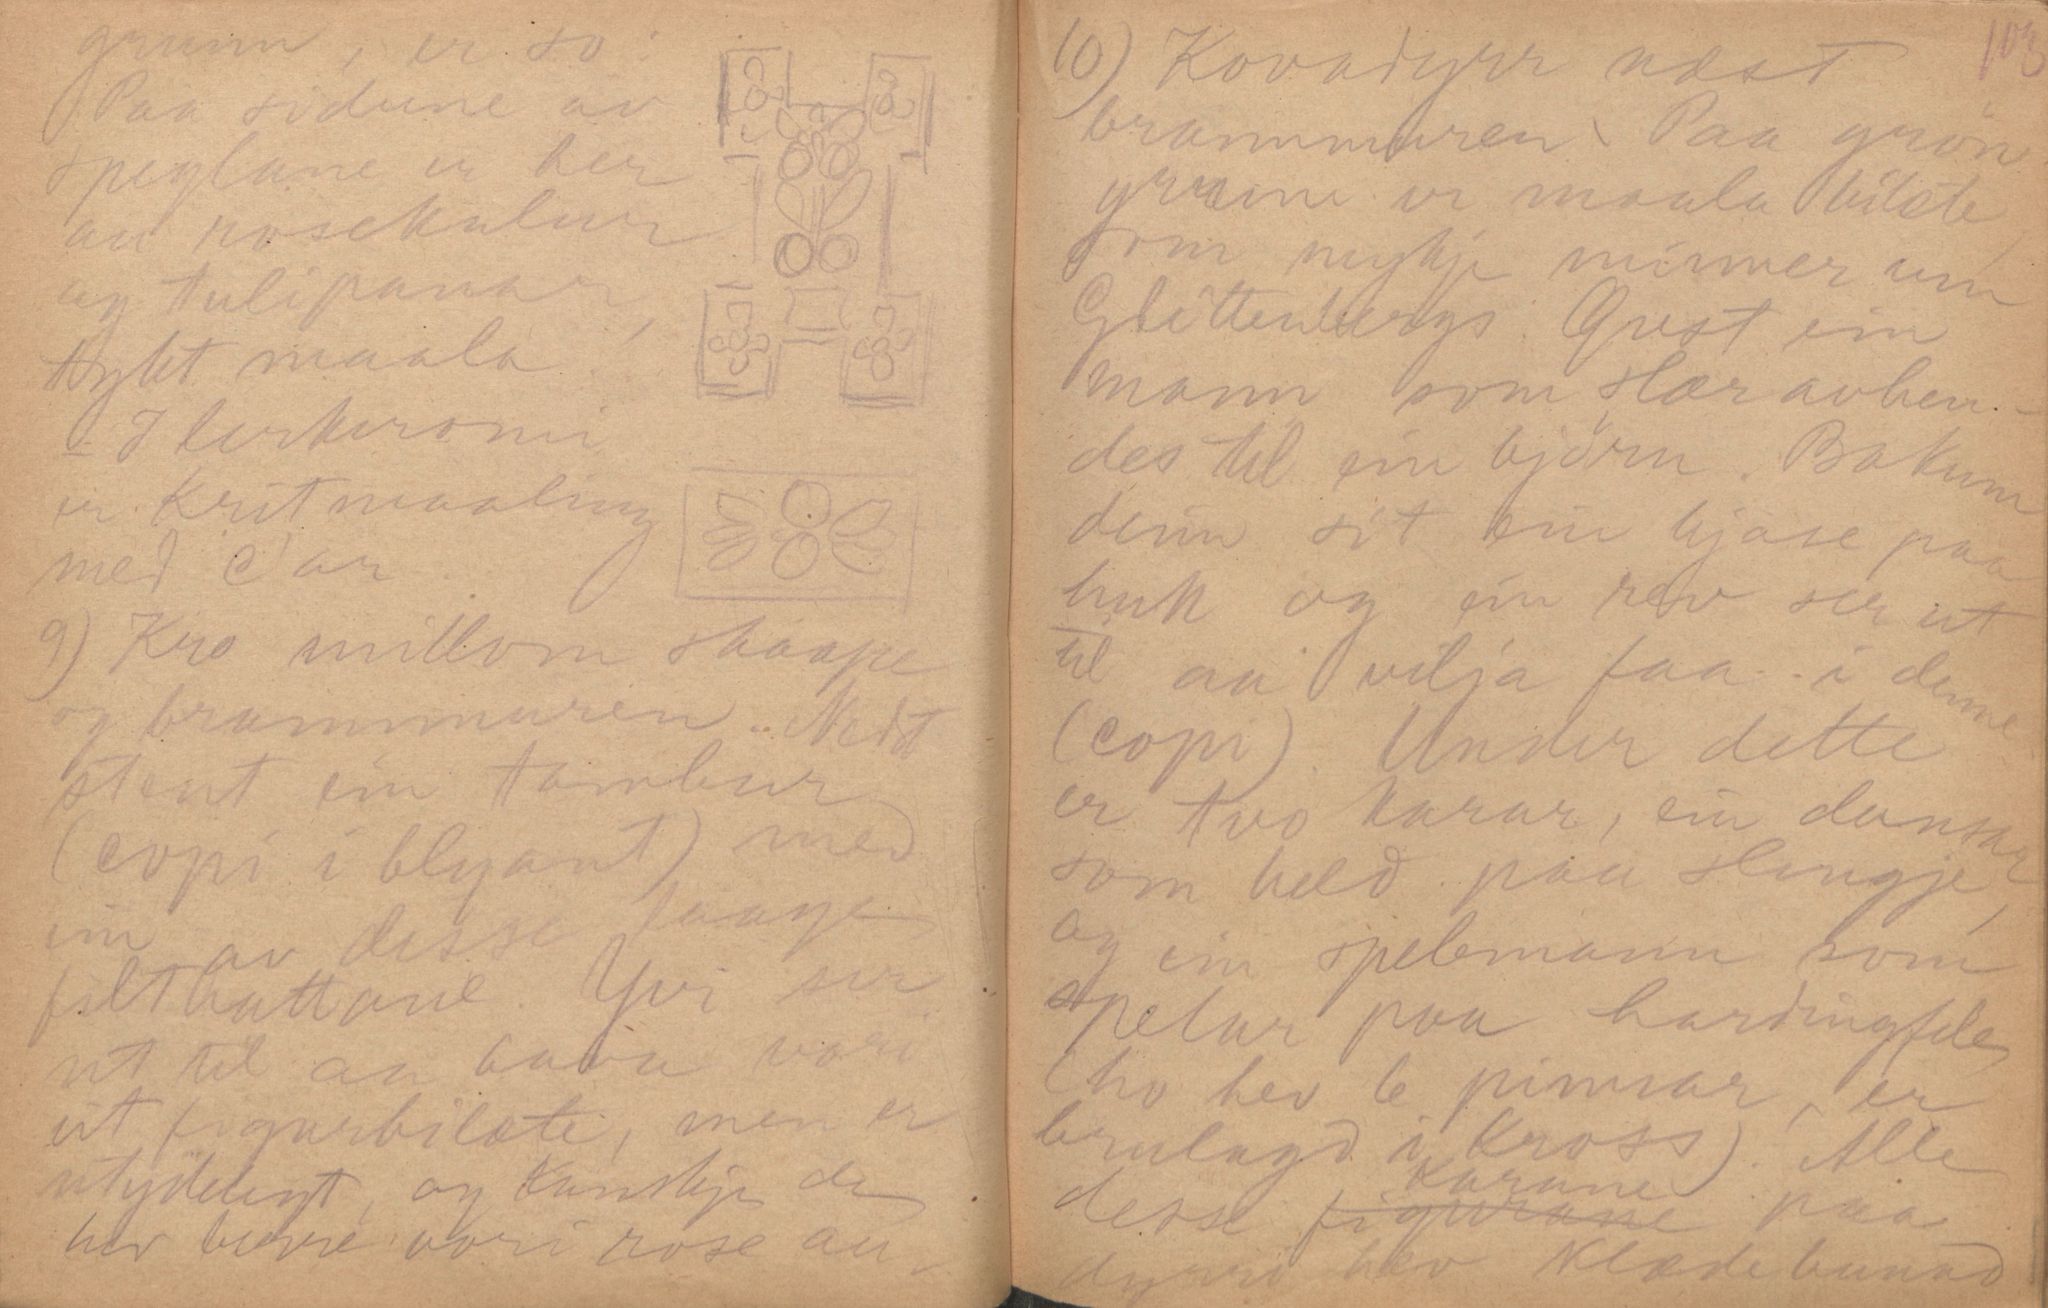 grunn, er so:
Paa sidune av
speglane er her
au rosekulur
og tulipanar,
tykt maala.
- I
er kritmaaling
med c'ar.
9) Kro millom skaape
og brammuren. Nedst
stent ein tambur
(copi i blyant) med
ein av desse haage
filthattane. Yvi ser
ut til aa hava vori
eit figurbilæte, men er
utydelegt, og kanskje de
hev berre vori rose au.
103
10) Kovadyrr næst
brammuren. Paa grön
grunn er maala bilæte,
som mykje minner um
Glittenbergs. Øvst ein
mann som slær avhen-
des til ein björn. Bakum
denn sit ein hjase paa
huk og ein rev ser ut
til aa vilja faa i denne
(copi). Under dette
er two karar, ein dansar
som held paa slengje,
og ein spelemann som
spelar paa hardingfele,
(ho hev 6 pinnar, er
brulagd i kross). Alle
desse figurane karane paa
dyrri hev klædebunad